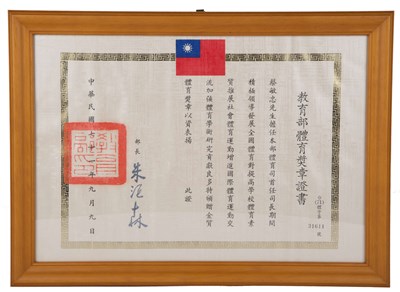 教育部體育獎章證書
蔡敏忠先生擔任本部體育司首任司長期間
積極領導發展全國體育對提高學校體育素
質推展社會體育運動增進國際體育運動交
流加強體育學術研究貢獻良多特頒贈金質
體育獎章以資表揚
此證
部長
朱匯森
中華民國七十二年九月九日